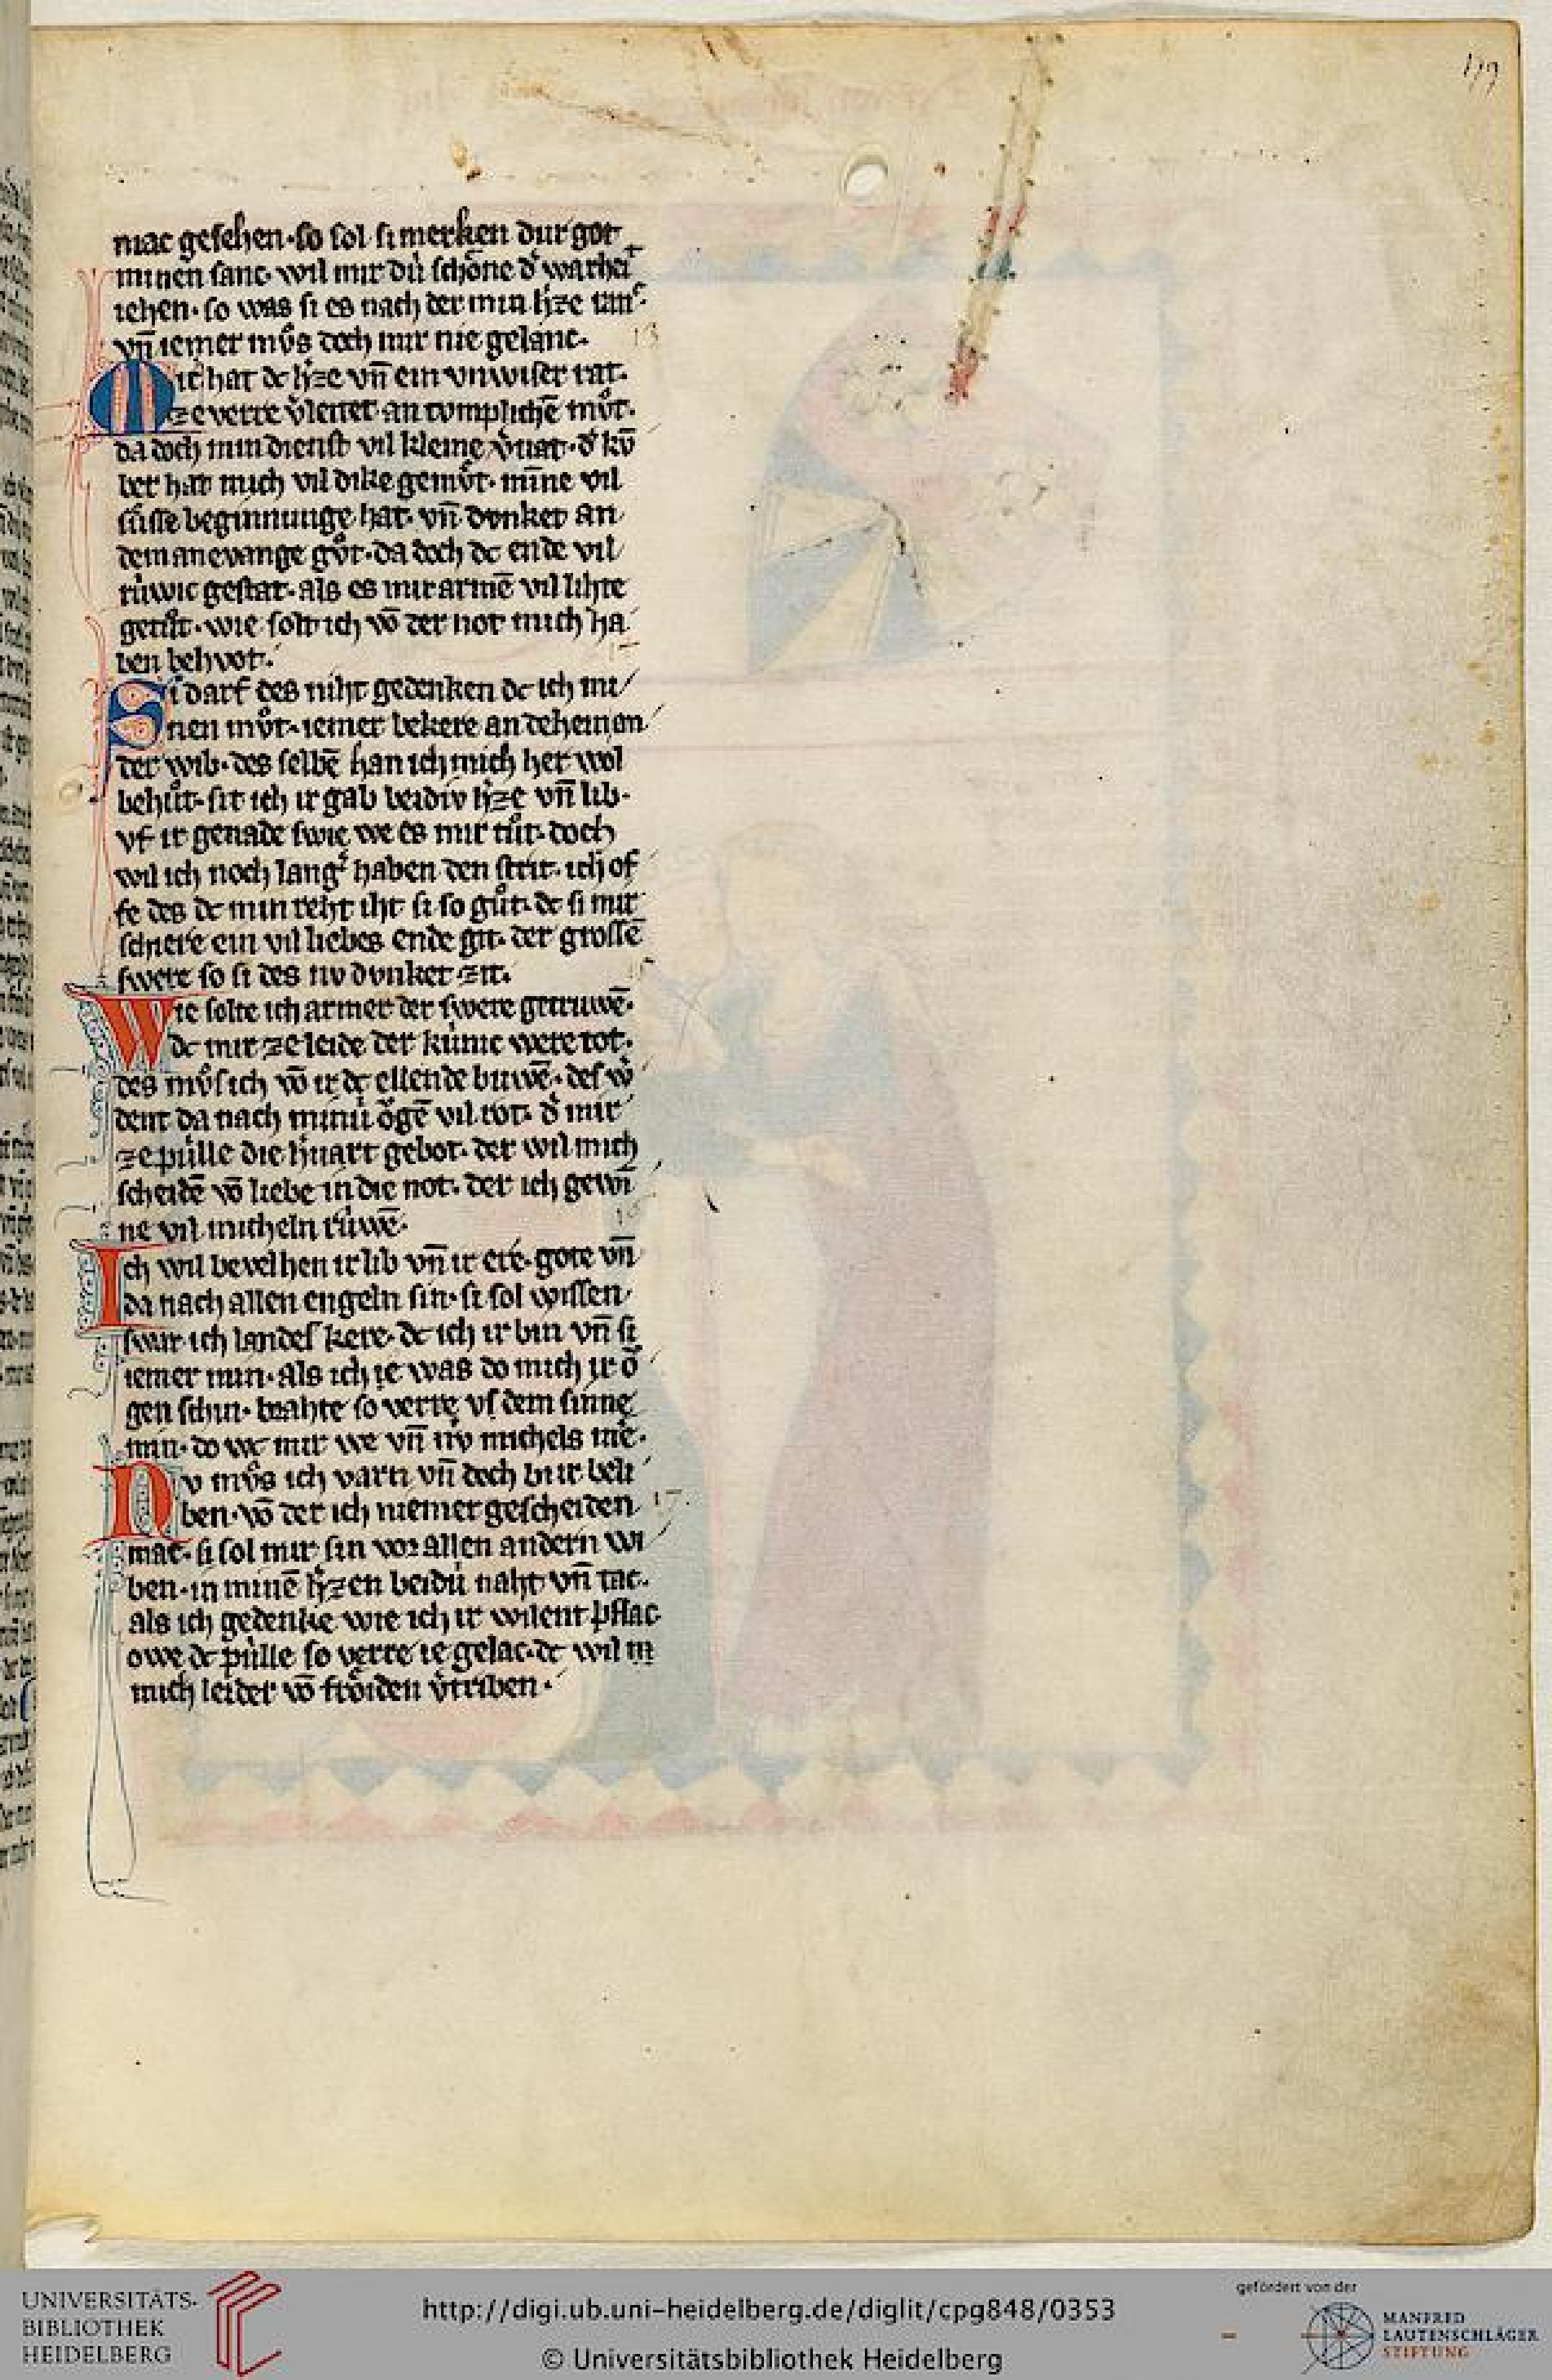 179
mac gesehen· so sol si merken dur got
minen sanc· wil mir dú schône d᾽ warheit
iehen· so was si es nach der min h᾽ze ranc·
vn̄ iemer mv̊s doch mir nie gelanc·
Mir hat dc h᾽ze vn̄ ein vnwiser rat·
ze verre v᾽leitet· an tomplichē mv̊t·
da doch min dienst vil kleine v᾽uat· d᾽ kv̄
ber hat mich vil dike gemv̊t· mīne vil
sússe beginnunge hat· vn̄ dvnket an
dem anevange gv̊t· da doch dc ende vil
rúwic gestat· als es mir armē vil lihte
getůt· wie solt ich vō der not mich ha
ben behvot·
Si darf des niht gedenken dc ich mi
nen mv̊t· iemer bekere an deheinen
der wib· des selbē han ich mich her wol
behůt· sit ich ir gab beidiv h᾽ze vn̄ lib·
vf ir genade swie we es mir tůt· doch
wil ich noch lang᾽ haben den strit· ich of
fe des dc min reht iht si so gůt· dc si mir
schiere ein vil liebes ende git· der grossē
swere so si des nv dvnket zit·
Wie solte ich armer der swere getruwē·
dc mir ze leide der kúnic were tot·
des mv̊s ich vō ir dc ellende buwē· des w᾽
dent da nach minú ǒgē vil rot· d᾽ mir
ze púlle die h᾽uart gebot· der wil mich
scheidē vō liebe in die not· der ich gewī
ne vil micheln rúwē·
Ich wil bevelhen ir lib vn̄ ir ere· gote vn̄
da nach allen engeln sin· si sol wissen
swar ich landes kere· dc ich ir bin vn̄ si
iemer min· als ich ie was do mich ir ǒ
gen schin· brahte so verre vs dem sinne
min· do wc mir we vn̄ nv michels mē·
Nv mv̊s ich varn vn̄ doch bi ir beli
ben· vō der ich niemer gescheiden
mac· si sol mir sin vor allen andern wi
ben· in minē h᾽zen beidú naht vn̄ tac·
als ich gedenke wie ich ir wilent pflac
owe dc púlle so verre ie gelac· dc wil
mich leider vō frǒiden v᾽triben·
UNIVERSITÄTS-
BIBLIOTHEK
HEIDELBERG
http://digi.ub.uni-heidelberg.de/diglit/cpg848/0353
© Universitätsbibliothek Heidelberg
gefördert von der
MANFRED
LAUTENSCHLÄGER
STIFTUNG